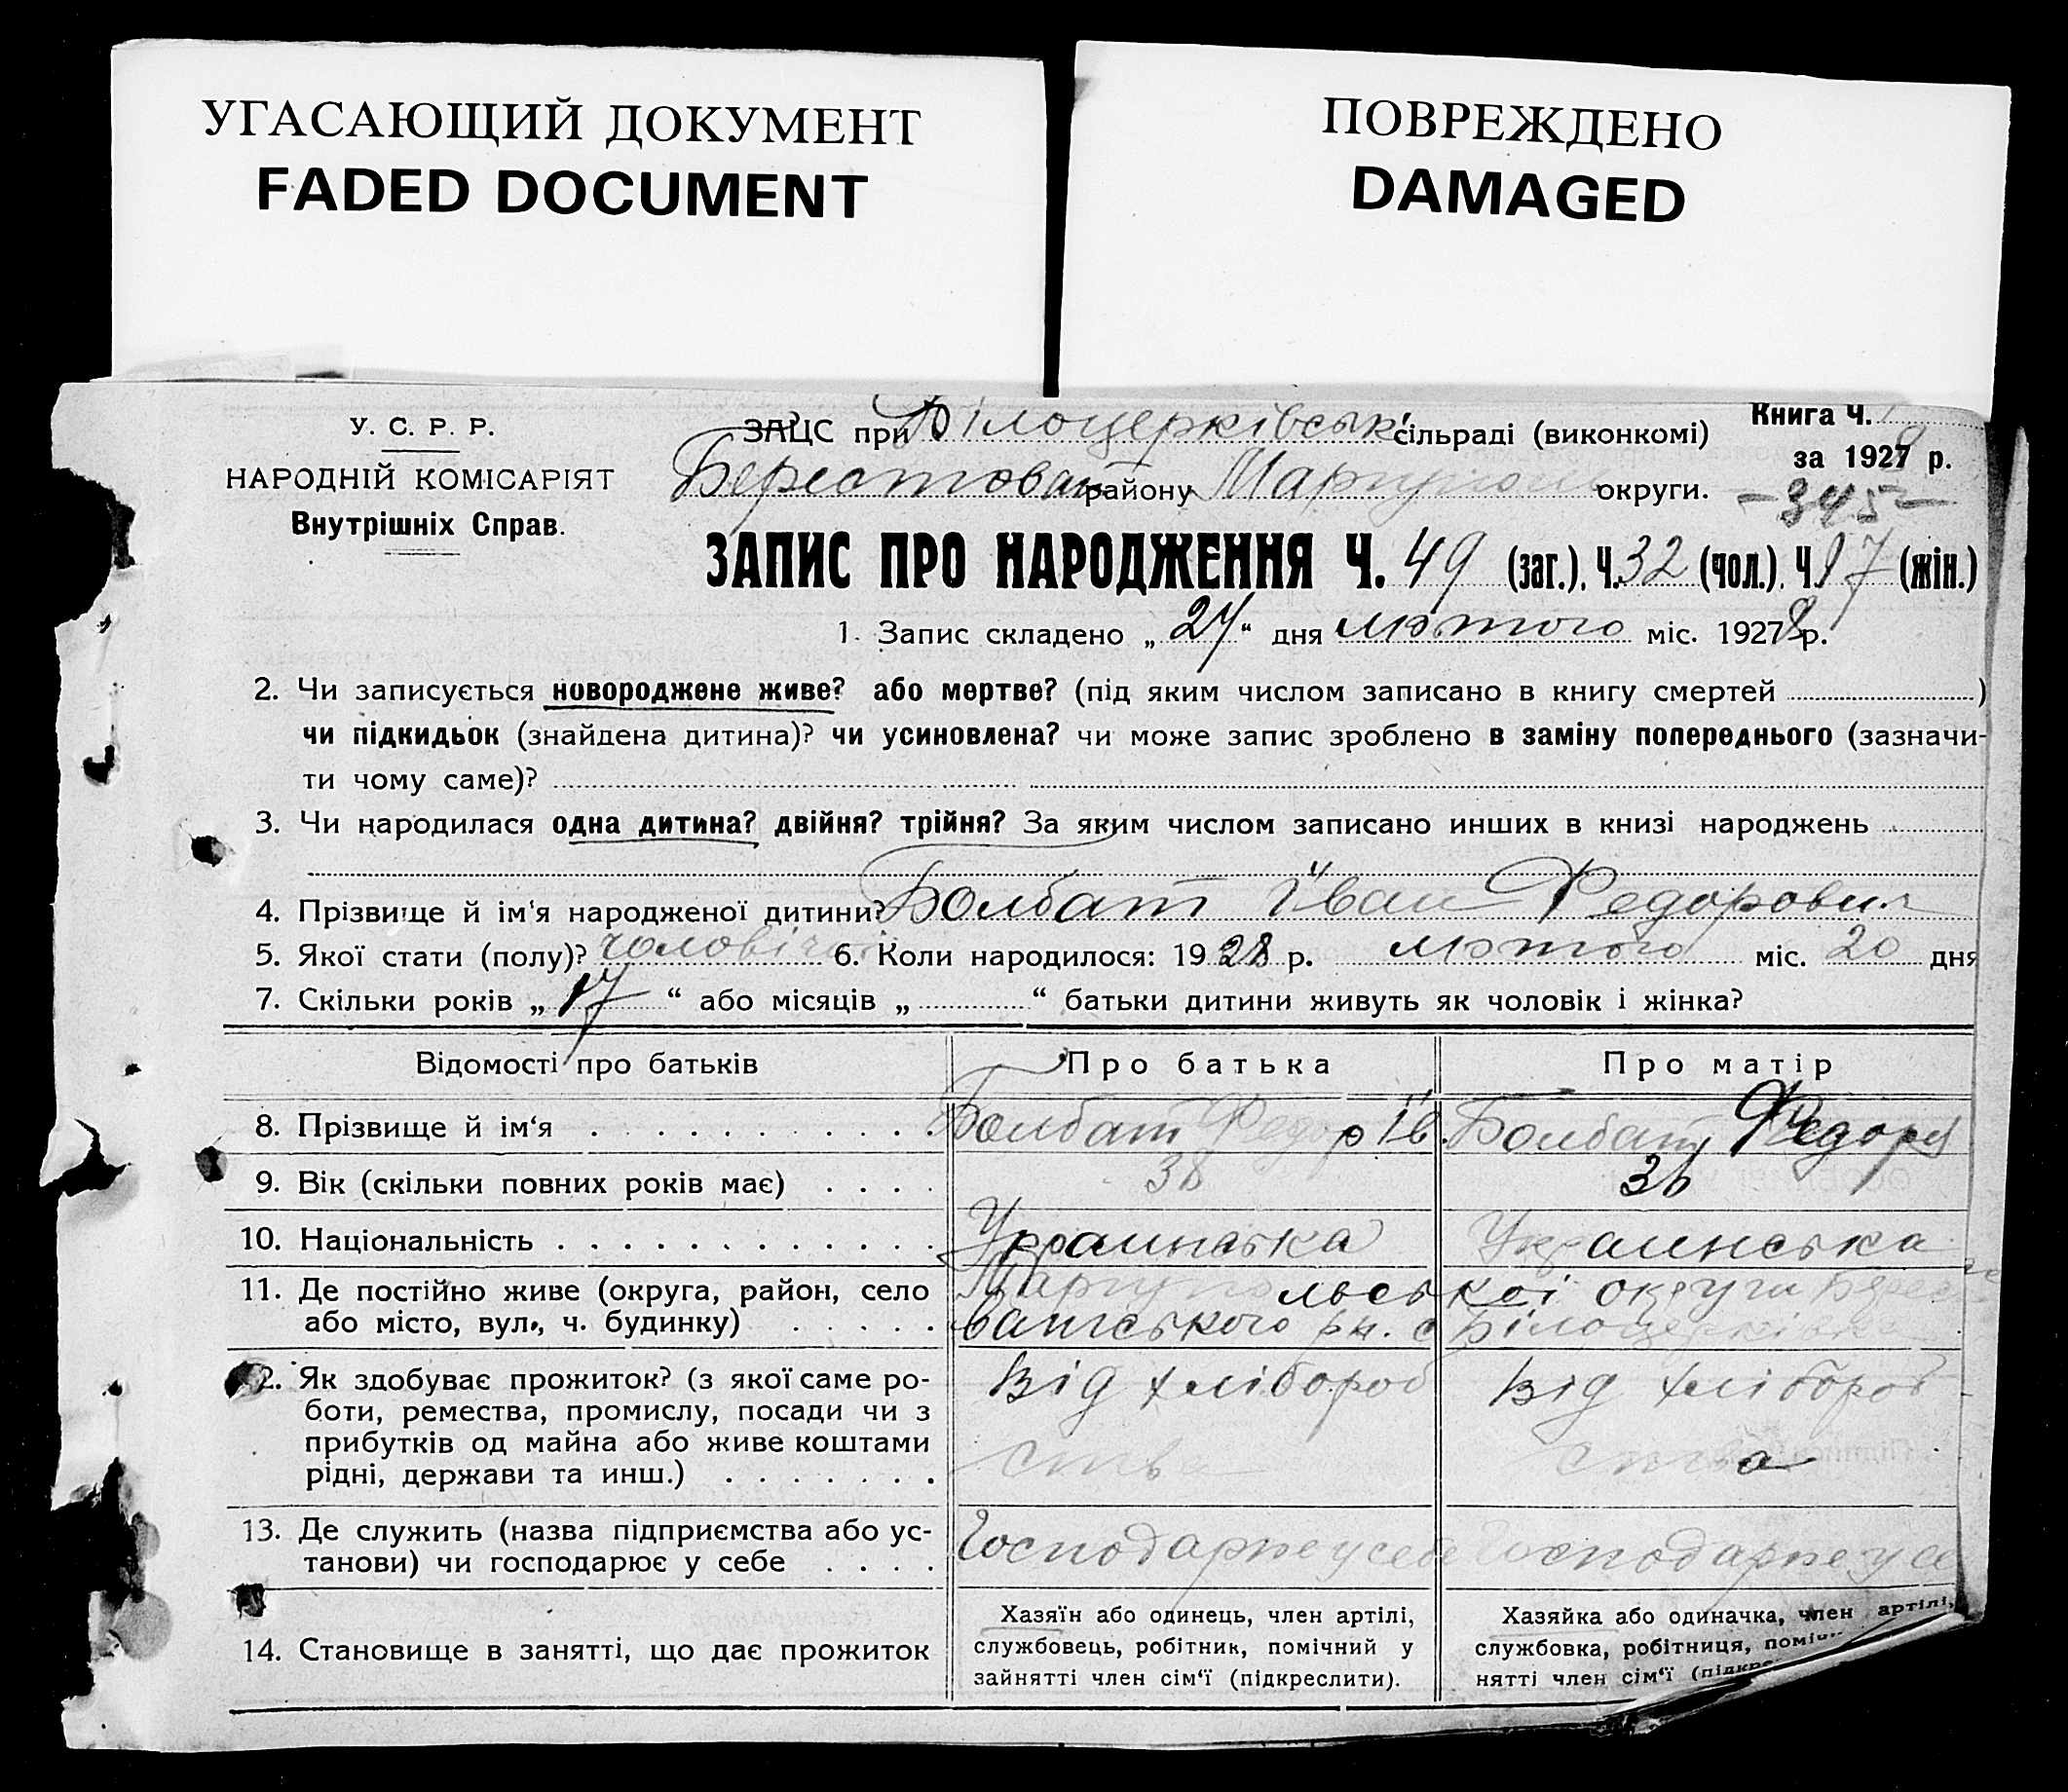 УГАСАЮЩИЙ ДОКУМЕНТ
FADED DOCUMENT
ПОВРЕЖДЕНО
DAMAGED
У. С. Р. Р.
НАРОДНІЙ КОМІСАРІЯТ
Внутрішніх Справ.
ЗАЦС при Білоцерківськ сільраді (виконкомі)
Берестован району Маріуполь округи.
Книга Ч.
за 1928 р.
-345-
ЗАПИС ПРО НАРОДЖЕННЯ Ч. 49 (заг.), Ч. 32 (чол.), Ч. 17 (жін.)
1. Запис складено „ 24 “ дня лютого міс. 1928 р.
2. Чи записується новороджене живе? або мертве? (під яким числом записано в книгу смертей )
чи підкидьок (знайдена дитина)? чи усиновлена? чи може запис зроблено в заміну попереднього (зазначи-
ти чому саме)?
3. Чи народилася одна дитина? двійня? трійня? За яким числом записано инших в книзі народжень
4. Прізвище й ім'я народженої дитини? Болбат Іван Федорович
5. Якої стати (полу)? чоловіча 6. Коли народилося: 1928 р. лютого міс. 20 дня
7. Скільки років „ 17 “ або місяців „ “ батьки дитини живуть як чоловік і жінка?
Відомості про батьків Про батька Про матір
8. Прізвище й ім'я Болбат Федор Ів. Болбат Федора
9. Вік (скільки повних років має) 38 36
10. Національність Украинська Украинська
11. Де постійно живе (округа, район, село Маріупольської округи Берест
або місто, вул., ч. будинку) ватського рн. с Білоцерківка
12. Як здобуває прожиток? (з якої саме ро- від хлібороб від хлібороб
боти, ремества, промислу, посади чи з
прибутків од майна або живе коштами ства ства
рідні, держави та инш.)
13. Де служить (назва підприємства або ус- Господарює у себе Господарює у се
танови) чи господарює у себе
14. Становище в занятті, що дає прожиток
Хазяїн або одинець, член артілі,
службовець, робітник, помічний у
зайнятті член сім'ї (підкреслити).
Хазяйка або одиначка, член артілі,
службовка, робітниця, поміч
нятті член сім'ї (підкре